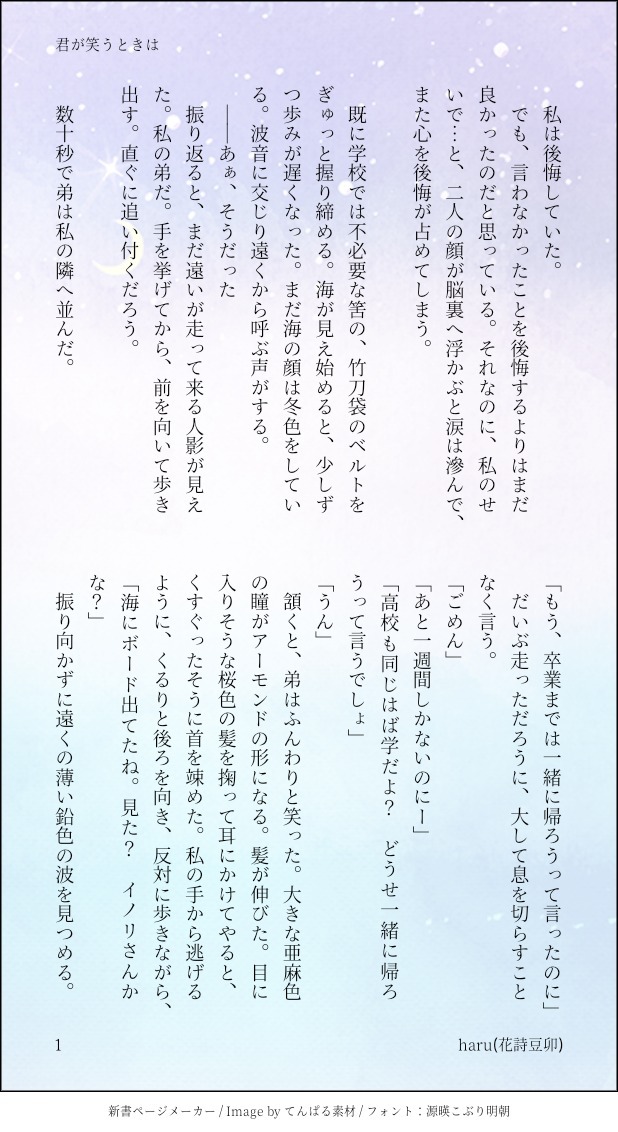 君が笑うときは
私は後悔していた。
でも、言わなかったことを後悔するよりはまだ
良かったのだと思っている。それなのに、私のせ
いで…と、二人の顔が脳裏へ浮かぶと涙は滲んで、
また心を後悔が占めてしまう。
既に学校では不必要な筈の、竹刀袋のベルトを
ぎゅっと握り締める。海が見え始めると、少しず
つ歩みが遅くなった。まだ海の顔は冬色をしてい
る。波音に交じり遠くから呼ぶ声がする。
――あぁ、そうだった
振り返ると、まだ遠いが走って来る人影が見え
た。私の弟だ。手を挙げてから、前を向いて歩き
出す。直ぐに追い付くだろう。
数十秒で弟は私の隣へ並んだ。
「もう、卒業までは一緒に帰ろうって言ったのに」
だいぶ走っただろうに、大して息を切らすこと
なく言う。
「ごめん」
「あと一週間しかないのにー」
「高校も同じはば学だよ？　どうせ一緒に帰ろ
うって言うでしょ」
「うん」
頷くと、弟はふんわりと笑った。大きな亜麻色
の瞳がアーモンドの形になる。髪が伸びた。目に
入りそうな桜色の髪を掬って耳にかけてやると、
くすぐったそうに首を竦めた。私の手から逃げる
ように、くるりと後ろを向き、反対に歩きながら、
「海にボード出てたね。見た？　イノリさんか
な？」
振り向かずに遠くの薄い鉛色の波を見つめる。
1
haru(花詩豆卯)
新書ページメーカー / Image by てんぱる素材 / フォント：源暎こぶり明朝